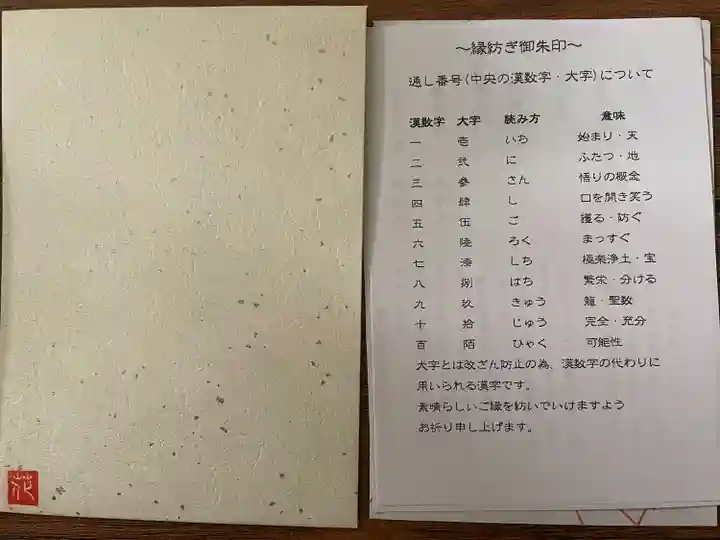 ～縁紡ぎ御朱印～
通し番号(中央の漢数字・大字)について
漢数字 大字 読み方 意味
一 壱 いち 始まり・天
二 弐 に ふたつ・地
三 參 さん 悟りの概念
四 肆 し 口を開き笑う
五 伍 ご 護る・防ぐ
六 陸 ろく まっすぐ
七 漆 しち 極楽浄土・宝
八 捌 はち 繁栄・分ける
九 玖 きゅう 龍・聖数
十 拾 じゅう 完全・充分
百 陌 ひゃく 可能性
大字とは改ざん防止の為、漢数字の代わりに
用いられる漢字です。
素晴らしいご縁を紡いでいけますよう
お祈り申し上げます。